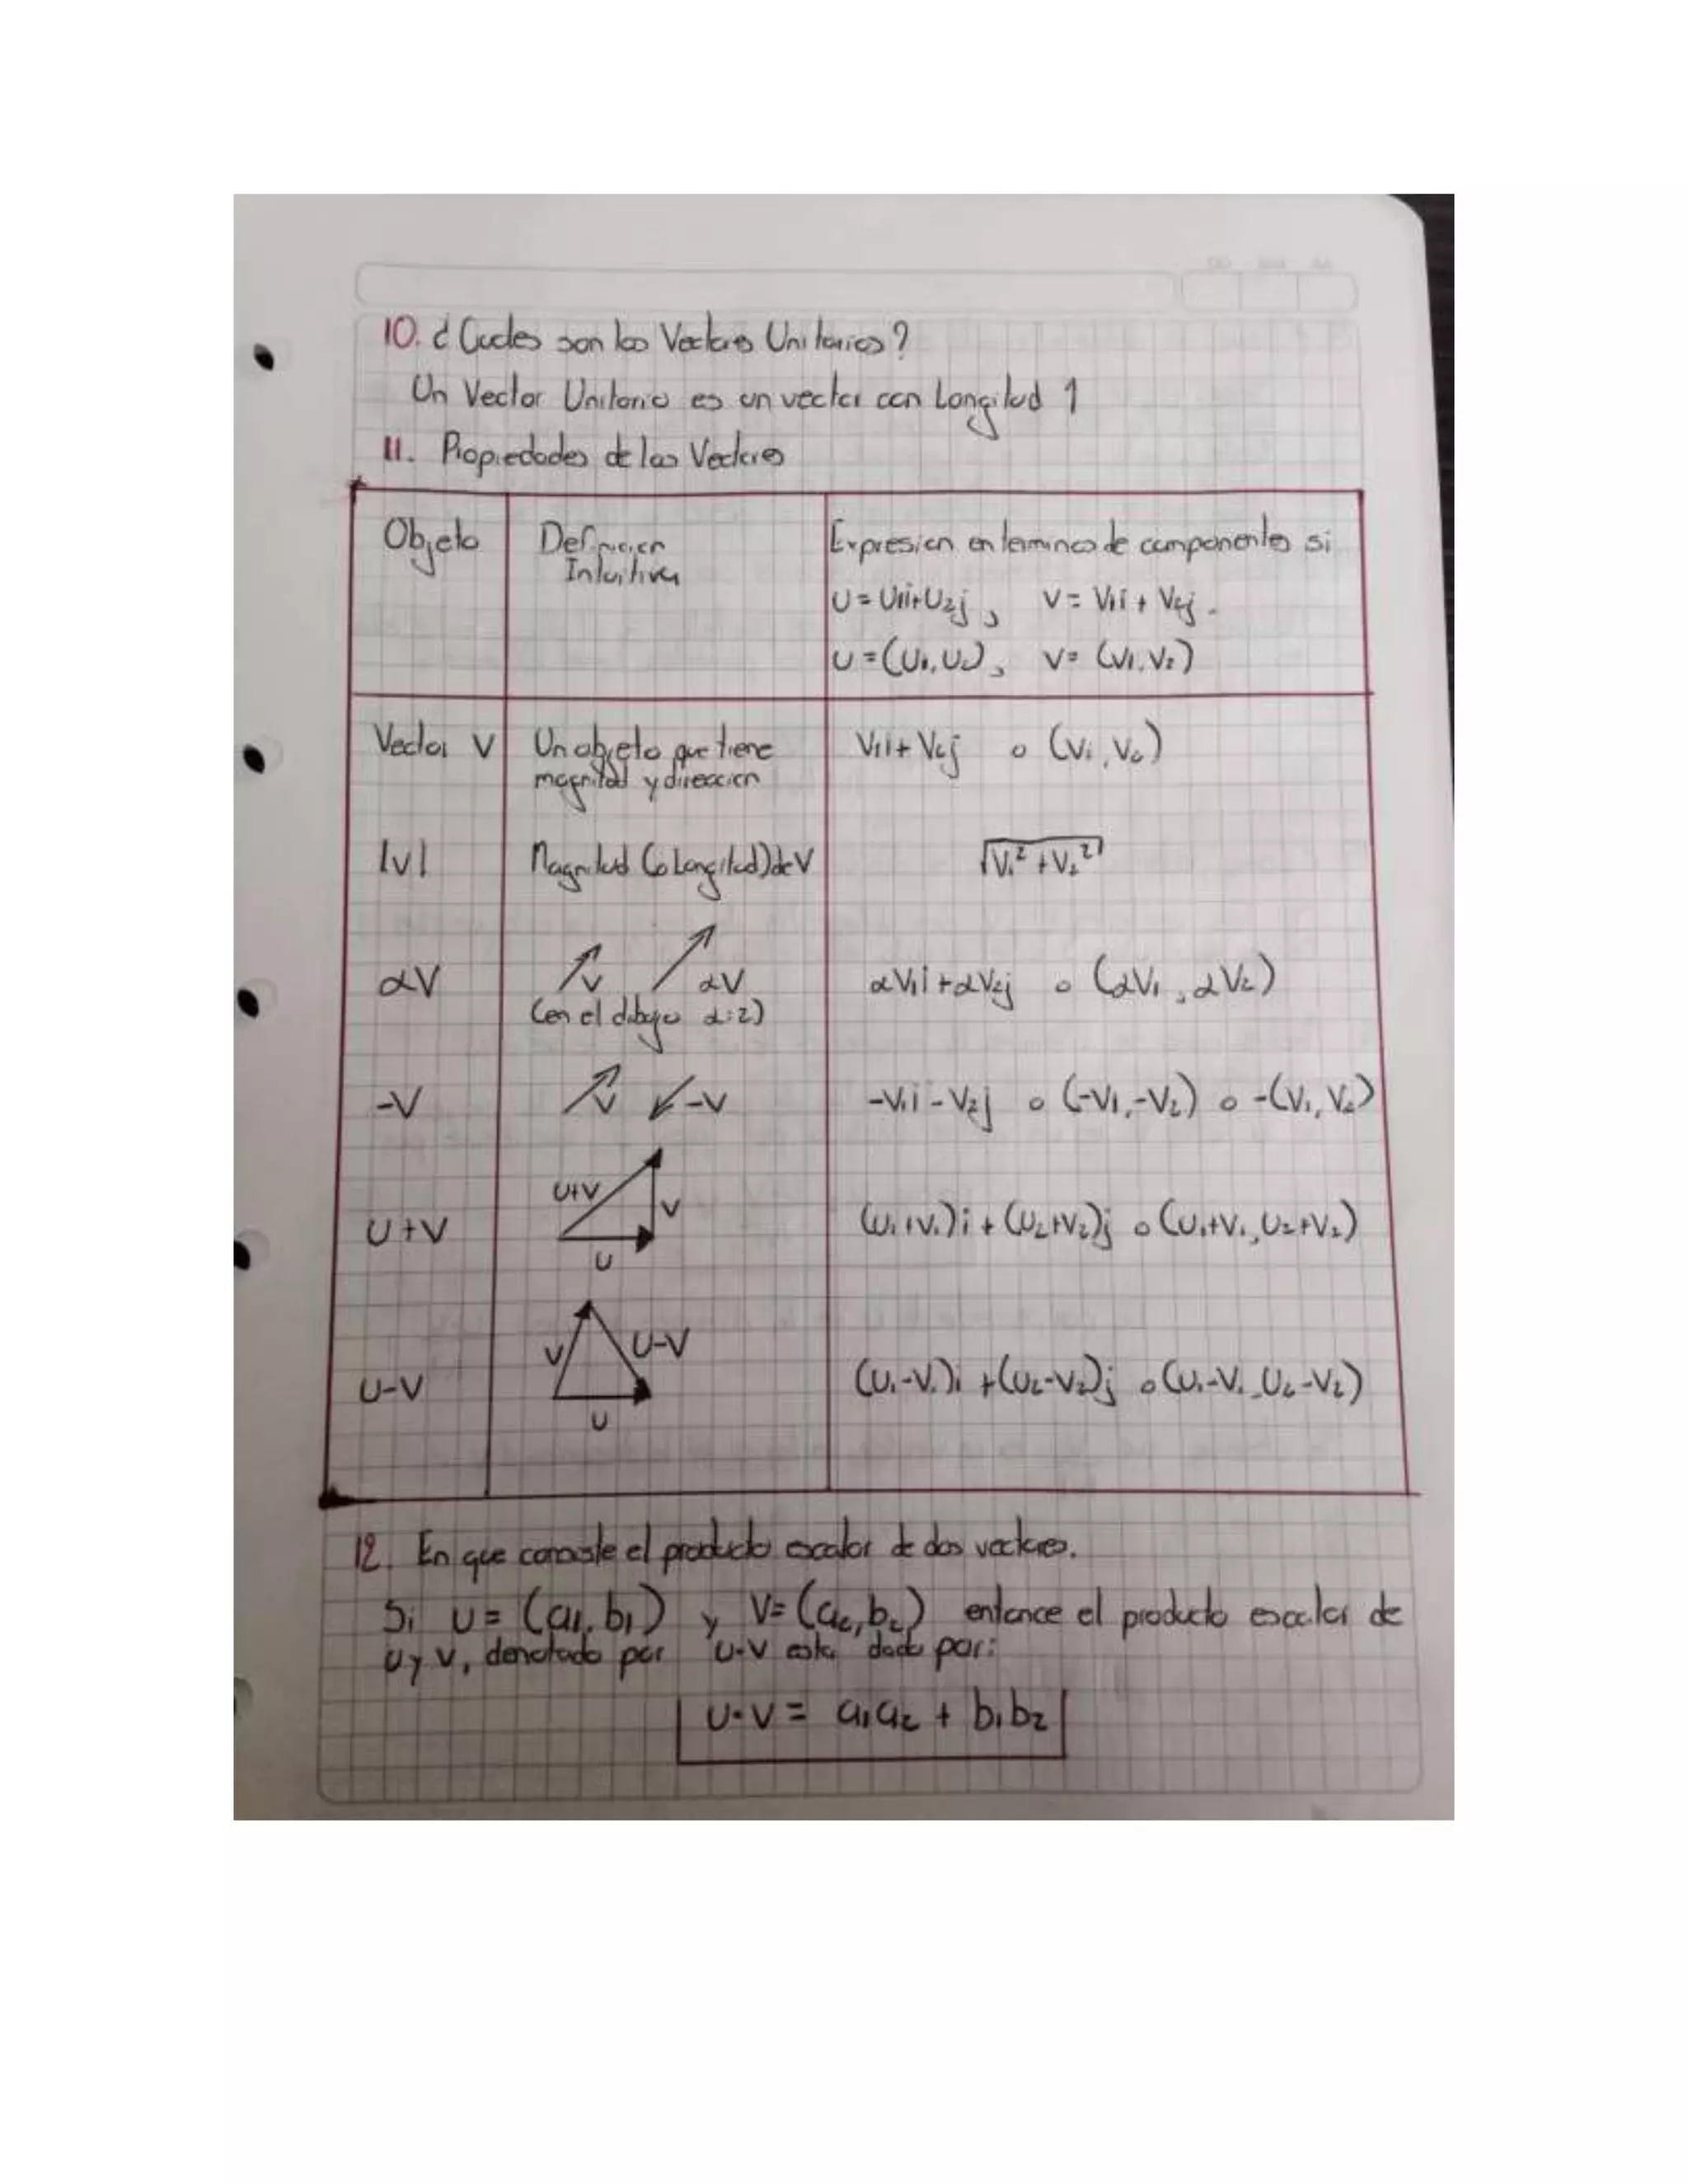 10. ¿Cuales son los Vectores Unitarios?
Un Vector Unitario es un vector con Longitud 1
11. Propiedades de los Vectores
Objeto
Definicion
Intuitiva
Expresion en terminos de componentes si
U = U₁i+U₂j, V = V₁i + V₂j.
U = (U₁,U₂), V = (V₁,V₂)
Vector V
Un objeto que tiene
magnitud y direccion
V₁i + V₂j o (V₁,V₂)
|v|
Magnitud (o Longitud) de V
√V₁² + V₂²
αV
V αV
(en el dibujo α=2)
αV₁i + αV₂j o (αV₁, αV₂)
-V
V -V
-V₁i - V₂j o (-V₁,-V₂) o -(V₁,V₂)
U+V
U+V
V
U
(U₁+V₁)i + (U₂+V₂)j o (U₁+V₁,U₂+V₂)
U-V
V U-V
U
(U₁-V₁)i +(U₂-V₂)j o (U₁-V₁,U₂-V₂)
12. En que consiste el producto escalar de dos vectores.
Si U = (a₁,b₁) y V=(a₂,b₂) entonce el producto escalar de
U y V, denotado por U·V esta dado por:
U·V = a₁a₂ + b₁b₂